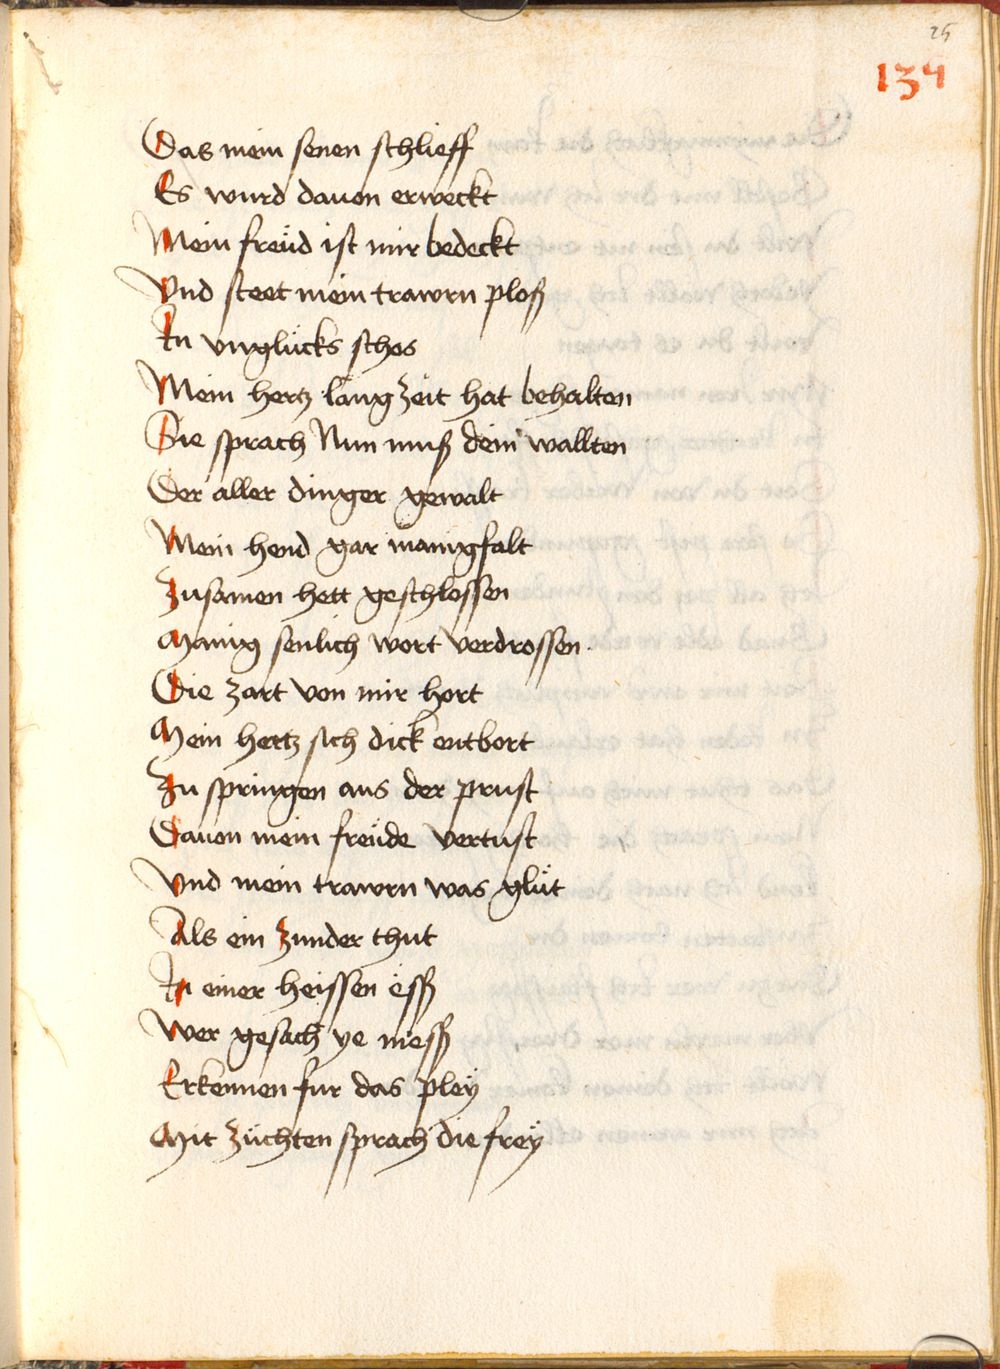 25
134
Das mein senen schlieff
Es wurd dauon erweckt
Mein freüd ist mir bedeckt
Vnd steet mein trawrn ploß
In vnglücks schos
Mein hertz lang zeit hat behalten
Sie sprach Nun muß dein wallten
Der aller dinger gewalt
Mein hend gar manigfalt
Zusamen hett geschlossen
Manig senlich wort verdrossen
Die zart von mir hort
Mein hertz sich dick entbort
Zu springen aus der prust
Dauon mein freüde vertust
Vnd mein trawrn was glüt
Als ein zunder thut
In einer heissen ess
Wer gesach ye mess
Erkennen fur das pleÿ
Mit züchten sprach die freÿ